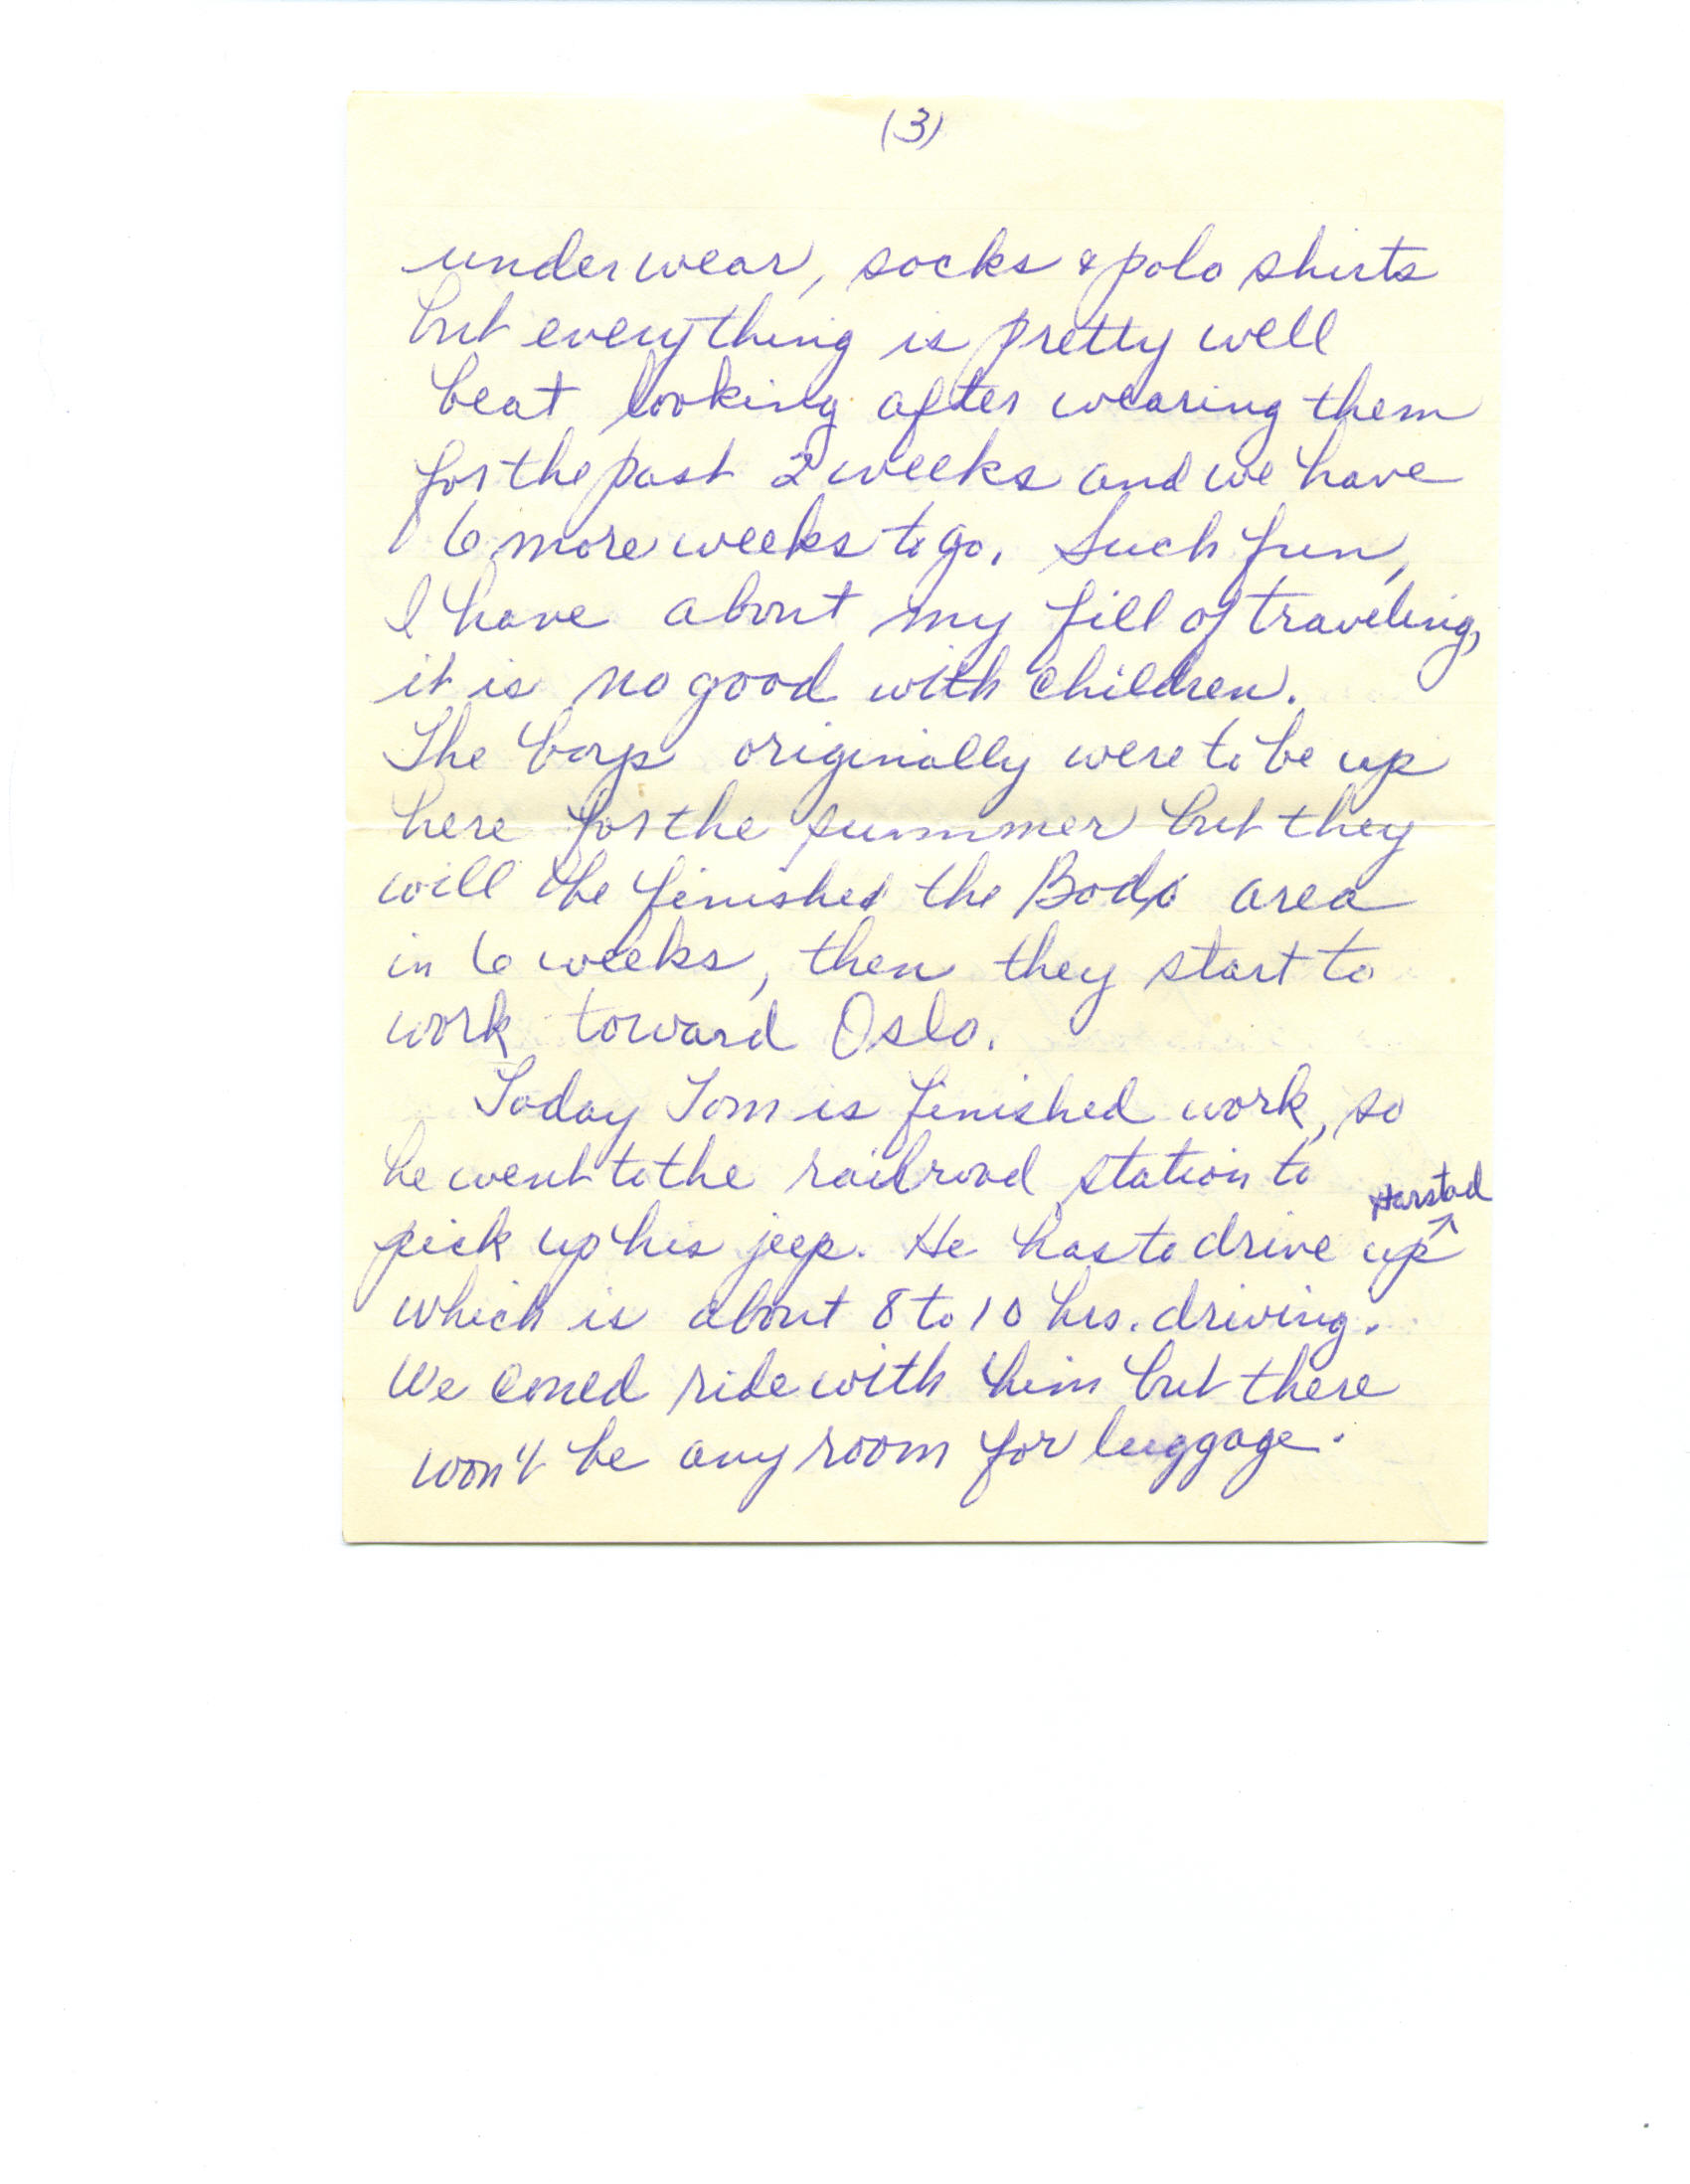 (3)
underwear, socks & polo shirts
but everything is pretty well
beat looking after wearing them
for the past 2 weeks and we have
6 more weeks to go. Such fun,
I have about my fill of traveling,
it is no good with children.
The boys originally were to be up
here for the summer but they
will be finished the Bodø area
in 6 weeks, then they start to
work toward Oslo.
Today Tom is finished work, so
he went to the railroad station to
Harstad
pick up his jeep. He has to drive up ^
which is about 8 to 10 hrs. driving.
We could ride with him but there
won't be any room for luggage.